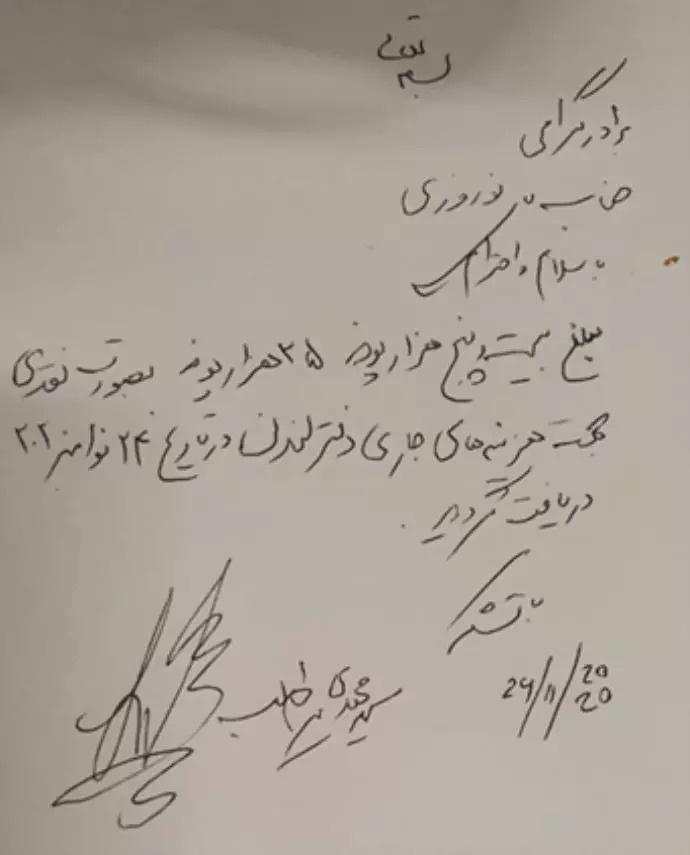 بسمه تعالی
برادر گرامی
جناب نوروزی
با سلام و احترام
مبلغ بیست و پنج هزار پوند ۲۵ هزار پوند بصورت نقدی
جهت هزینه‌های جاری دفتر لندن در تاریخ ۲۴ نوامبر ۲۰۲۰
دریافت گردید.
با تشکر
24/11/2020
سید مهدی